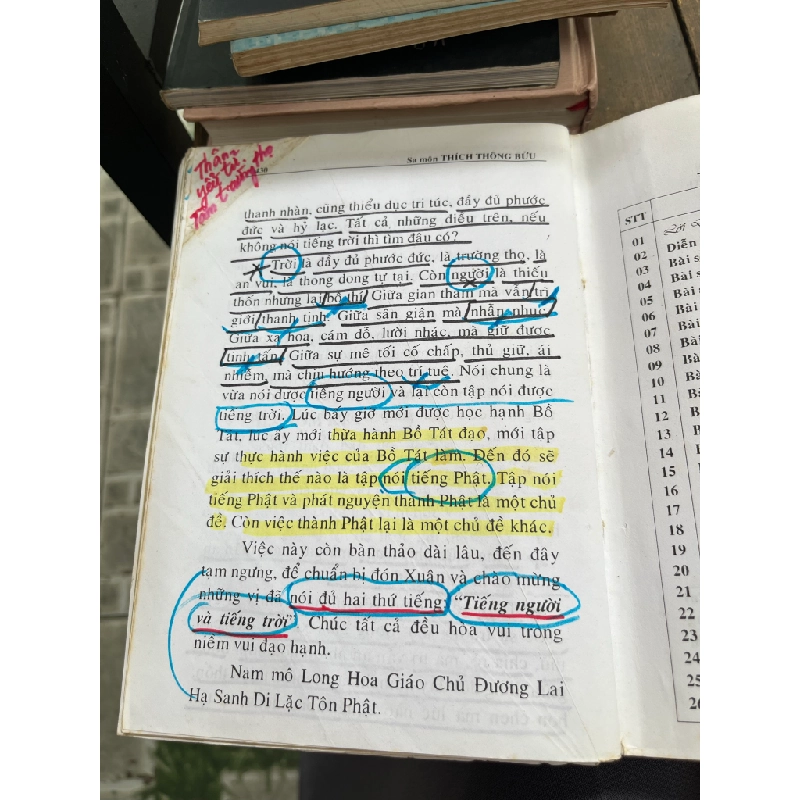 Thân
yêu tu.
Tâm trường thọ
430
Sa môn THÍCH THÔNG BỬU
thanh nhàn, cũng thiểu dục tri túc, đầy đủ phước
đức và hỷ lạc. Tất cả những điều trên, nếu
không nói tiếng trời thì tìm đâu có?
Trời là đầy đủ phước đức, là trường thọ, là
an vui, là thong dong tự tại. Còn người là thiếu
thốn nhưng lại bố thí. Giữa gian tham mà vẫn trì
giới, thanh tịnh. Giữa sân giận mà nhẫn nhục.
Giữa xa hoa, cám dỗ, lười nhác, mà giữ được
tinh tấn. Giữa sự mê tối cố chấp, thủ giữ, ái
nhiễm, mà chịu hướng theo trí tuệ. Nói chung là
vừa nói được tiếng người và lại còn tập nói được
tiếng trời. Lúc bấy giờ mới được học hạnh Bồ
Tát, lúc ấy mới thừa hành Bồ Tát đạo, mới tập
sự thực hành việc của Bồ Tát làm. Đến đó sẽ
giải thích thế nào là tập nói tiếng Phật. Tập nói
tiếng Phật và phát nguyện thành Phật là một chủ
đề. Còn việc thành Phật lại là một chủ đề khác.
Việc này còn bàn thảo dài lâu, đến đây
tạm ngưng, để chuẩn bị đón Xuân và chào mừng
những vị đã nói đủ hai thứ tiếng: "Tiếng người
và tiếng trời". Chúc tất cả đều hòa vui trong
niềm vui đạo hạnh.
Nam mô Long Hoa Giáo Chủ Đương Lai
Hạ Sanh Di Lặc Tôn Phật.
STT
01
02 Diễn
03 Bài s
04 Bài s
05 Bài s
06 Bài
07 Bài
08 Bài
09 Bài
10 Bài
11 Bài
12 Bài
13 Bài
14 Bài
15
16
17
18
19
20
21
22
23
24
25